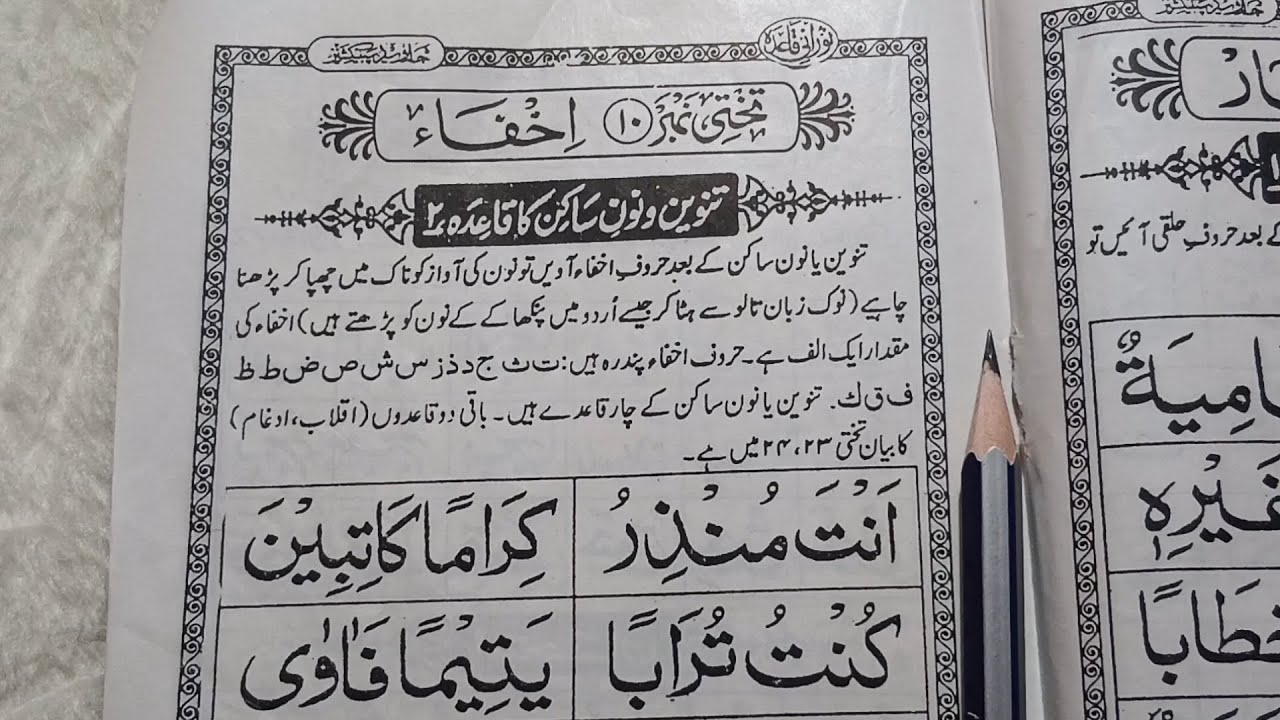 نورانی قاعدہ
تختی نمبر ۱۰ اِخْفَاء
تنوین و نونِ سَاکِن کا قاعِدَہ ۲
تنوین یا نون ساکن کے بعد حروفِ اخفاء آویں تو نون کی آواز کو ناک میں چھپا کر پڑھنا
چاہیے (نوک زبان تالو سے ہٹا کر جیسے اُردو میں پنکھا کے کے نون کو پڑھتے ہیں) اخفاء کی
مقدار ایک الف ہے۔ حروف اخفاء پندرہ ہیں: ت ث ج د ذ ز س ش ص ض ط ظ
ف ق ك. تنوین یا نون ساکن کے چار قاعدے ہیں۔ باقی دو قاعدوں (اقلاب، ادغام)
کا بیان تختی ۲۳، ۲۴ میں ہے۔
اَنْتَ مُنْذِرُ
كِرَامًا كَاتِبِيْنَ
كُنْتُ تُرَابًا
يَتِيْمًا فَاٰوٰى
کے بعد حروفِ حلقی آئیں تو
غَيْرِهٖ